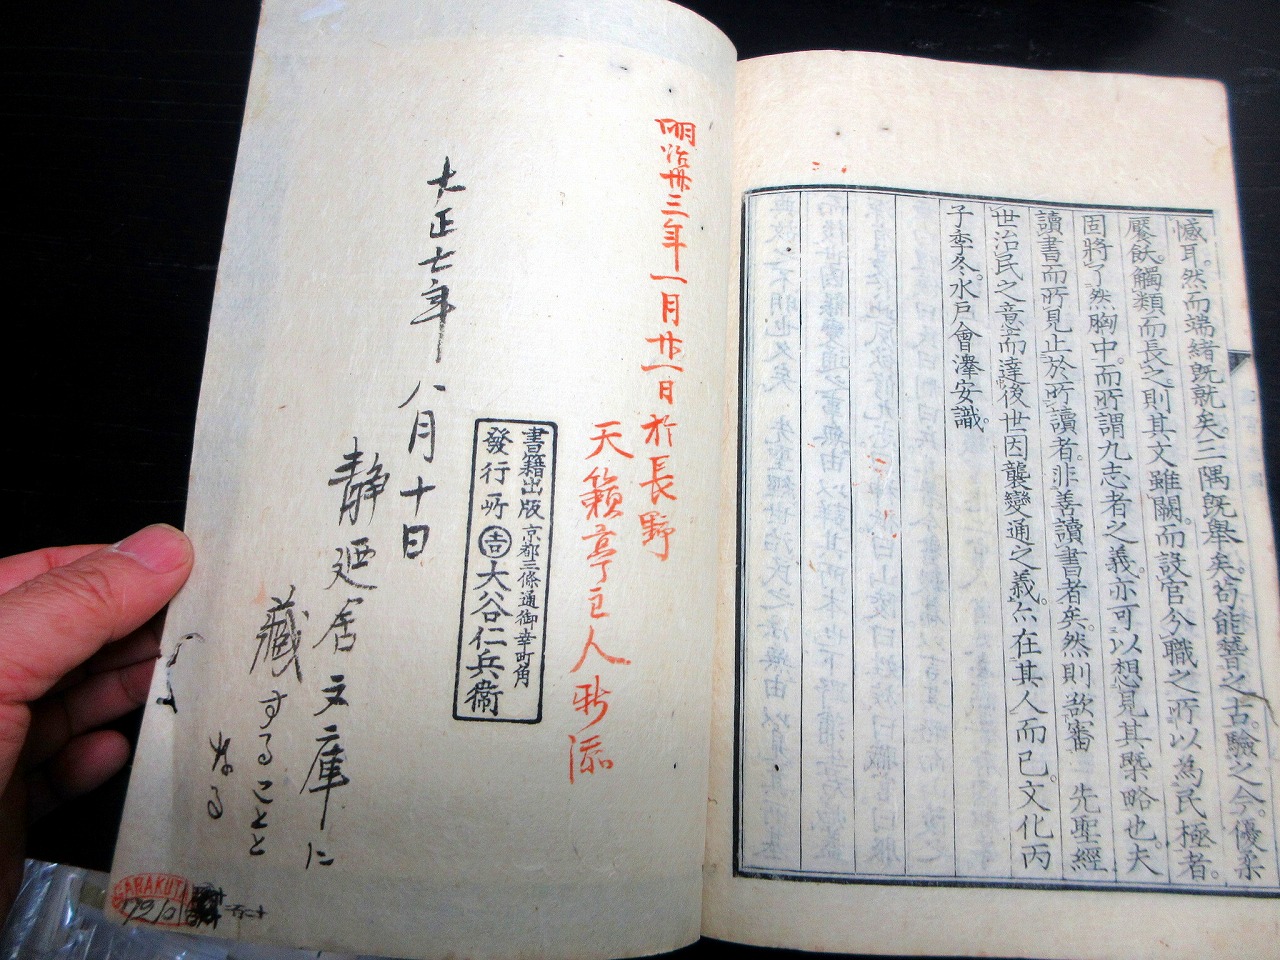 慽耳。然而端緒既就矣。三隅既舉矣。苟能讐之古。驗之今。優柔
饜飫。觸類而長之。則其文雖闕。而設官分職之所以為民極者。
固將了然胸中。而所謂九志者之義。亦可以想見其槩略也。夫
讀書而所見止於所讀者。非善讀書者矣。然則欲審 先聖經
世治民之意而達後世因襲變通之義。亦在其人而已。文化丙
子季冬。水戶會澤安識。
明治卅三年一月廿一日於長野
天籟亭主人
書籍出版 京都三條通御幸町角
發行所 吉 大谷仁兵衞
大正七年八月十日
静廼舎文庫に
藏することと
なる
GARAKUTA